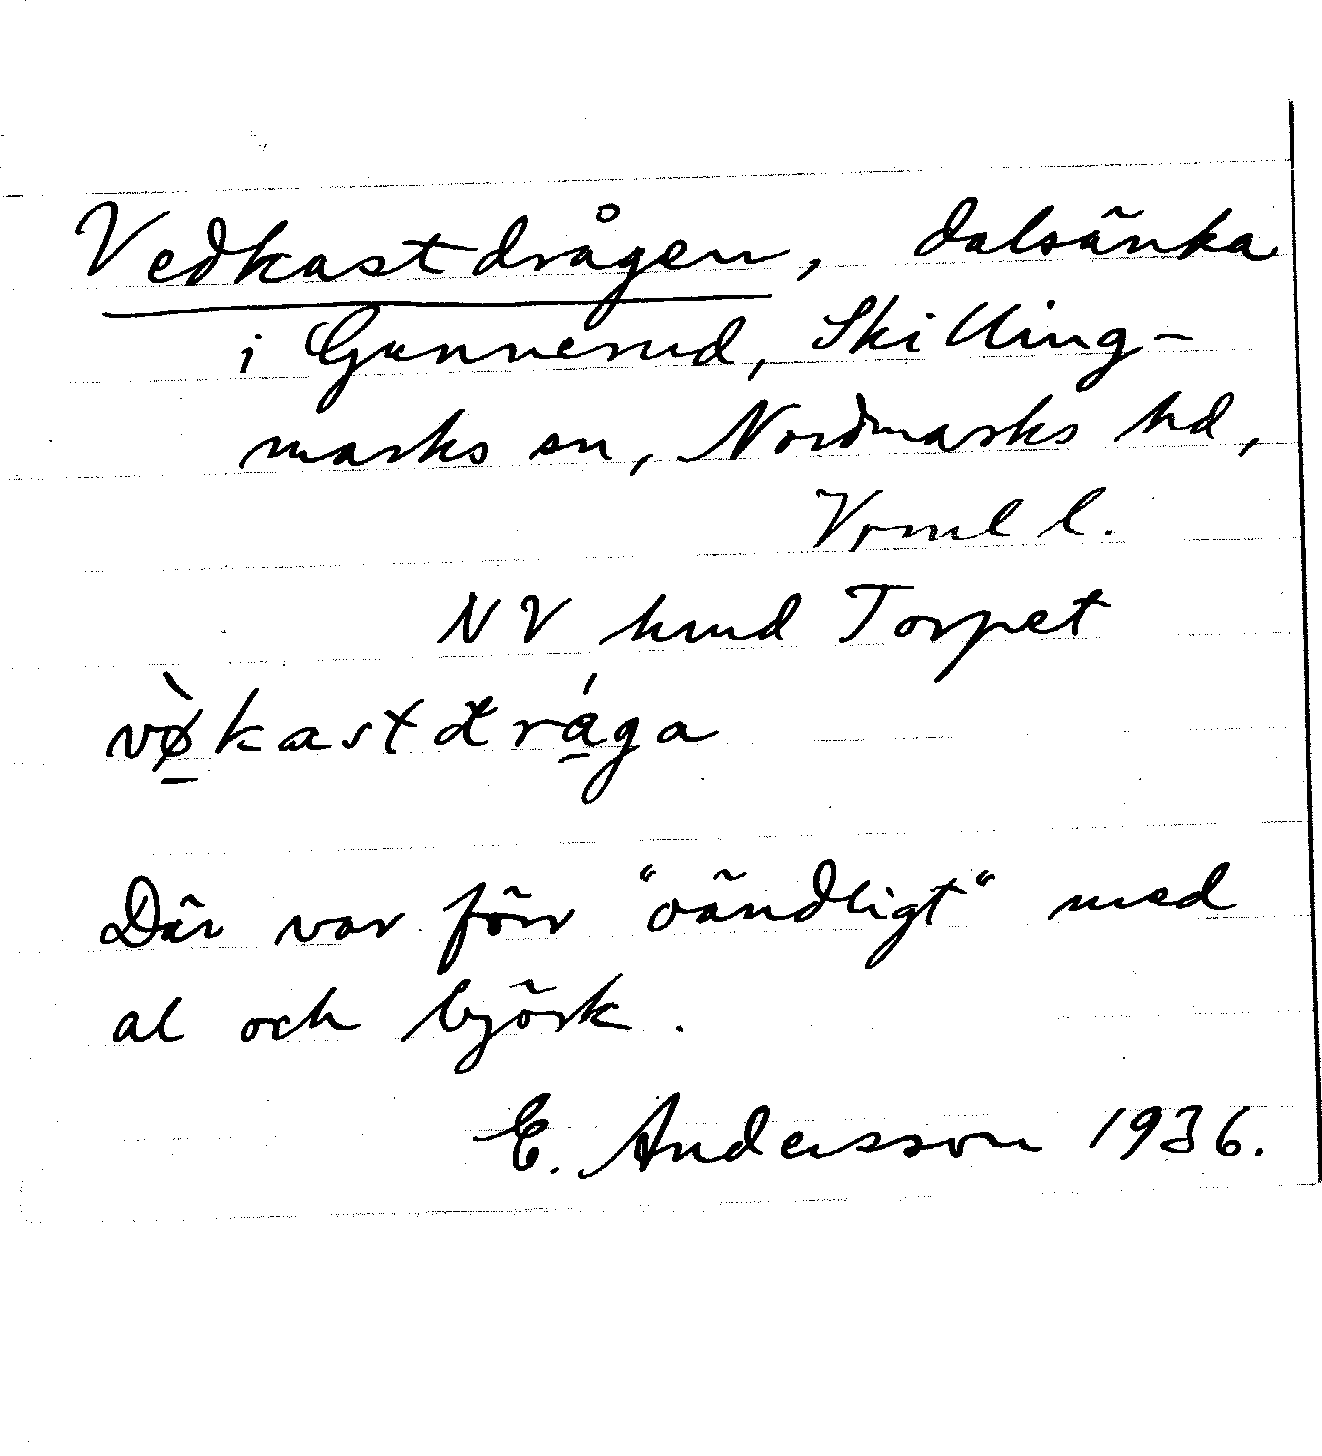 Vedkastdrågen, dalsänka
i Gunnerud, Skilling-
marks sn, Nordmarks hd,
Vrml l.
NV hmd Torpet
vø̠̀kastdrá̠ga
Där var förr "oändligt" med
al och björk.
E. Andersson 1936.